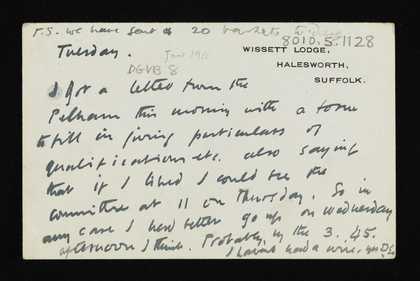 P.S. we have sent a 20 baskets today
8010.5.1128
Tuesday.
Jan 191
WISSETT LODGE,
HALESWORTH,
SUFFOLK.
DGVB 8
I got a letter from the
Pelham this morning with a form
to fill in giving particulars of
qualifications etc. also saying
that if I liked I could see the
committee at 11 on Thursday. So in
any case I had better go up on Wednesday
afternoon I think. Probably by the 3.45.
I havent had a wire. yr DG